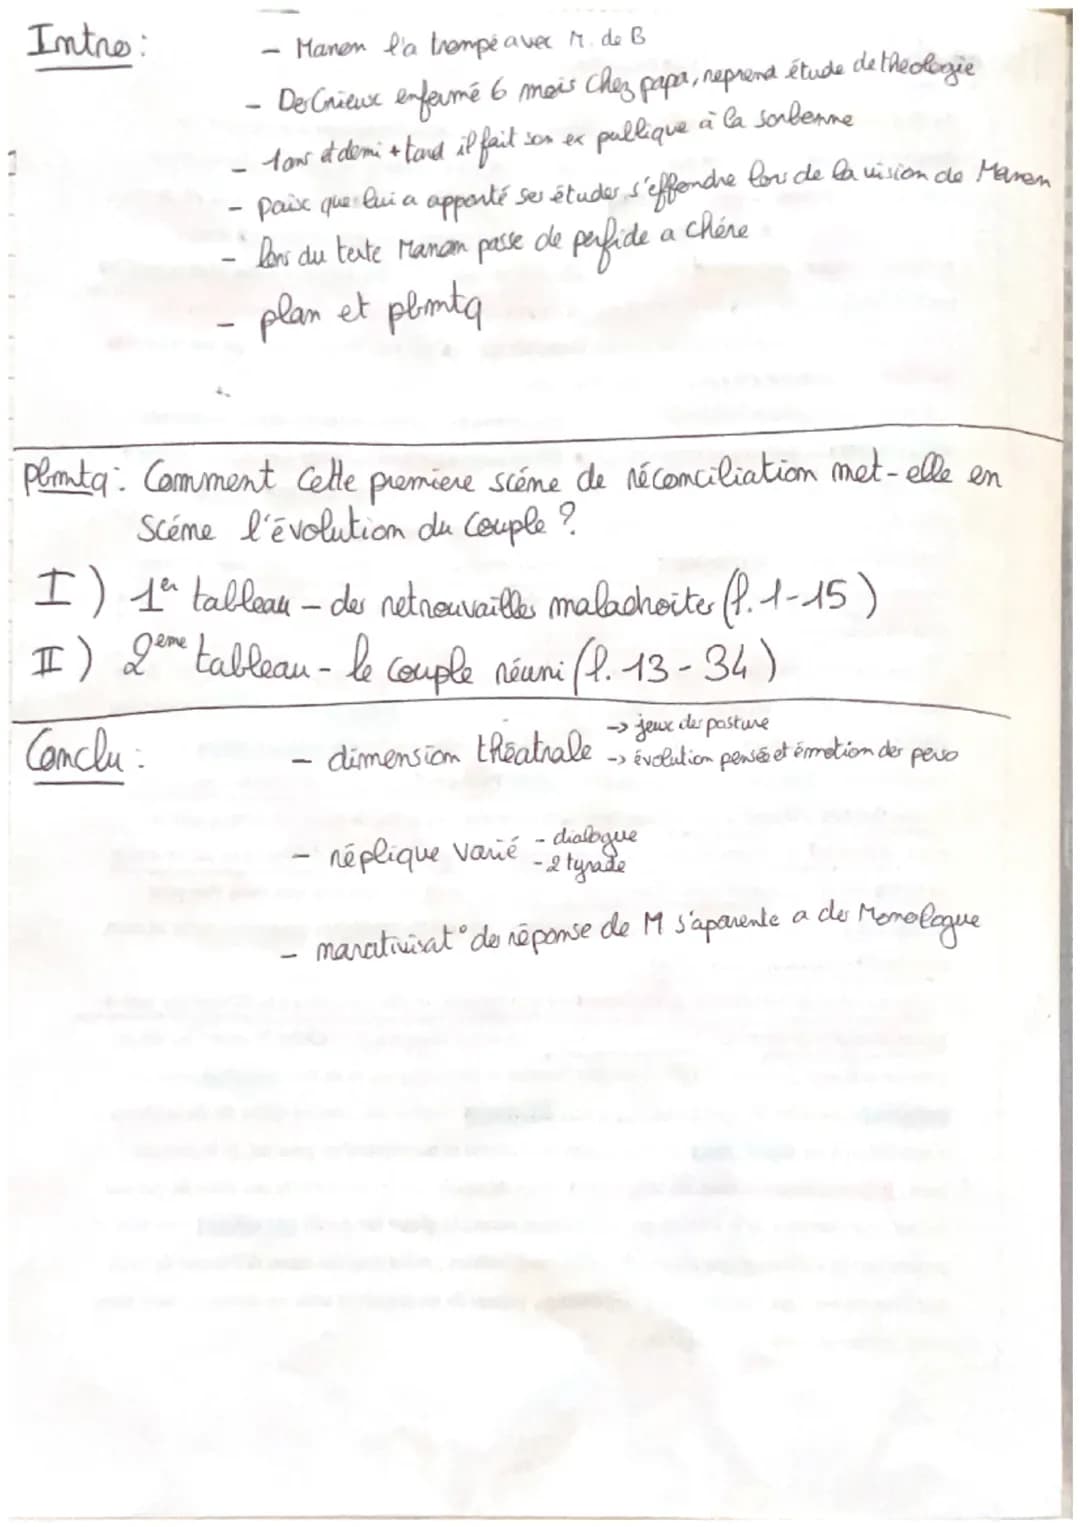 Intro :
- Manon l'a trompé avec M. de B
- Des Grieux enfermé 6 mois chez papa, reprend étude de théologie
- 1 ans et demi + tard il fait son ex publique à la sorbonne
- paix que lui a apporté ses études s'effondre lors de la vision de Manon
- lors du texte Manon passe de perfide a chére
- plan et pbmtq
Pbmtq : Comment cette premiere scéne de réconciliation met-elle en
scéne l'évolution du couple ?
I) 1er tableau - des retrouvailles maladroites (l. 1-15)
II) 2eme tableau - le couple réuni (l. 13-34)
Conclu :
- dimension théatrale -> jeux des posture
-> évolution pensée et émotion des perso
- réplique varié - dialogue
- 2 tyrade
- narativisat° de réponse de M s'aparente a des Monologue